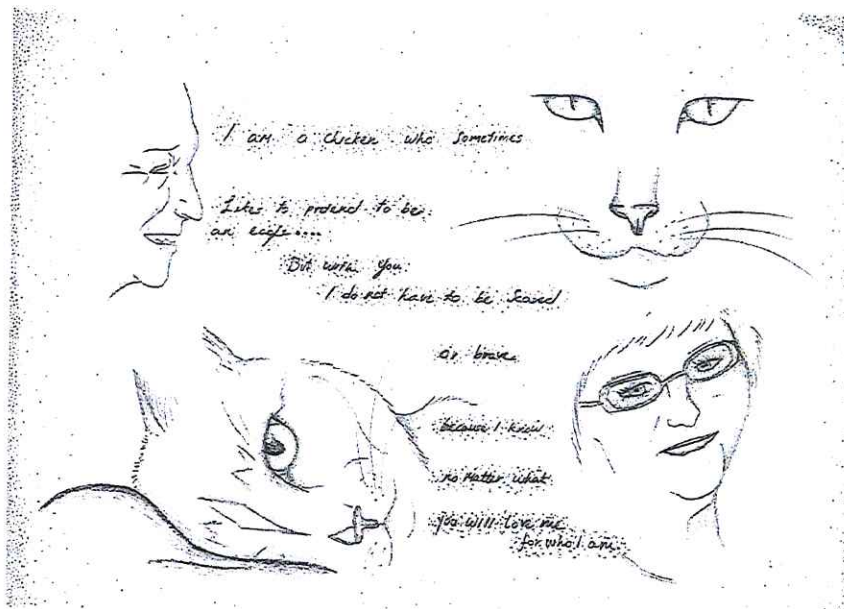 I am a chicken who sometimes
Likes to pretend to be
an eagle....
But with you
I do not have to be Scared
or brave
because I know
no Matter what
you will love me
for who I am